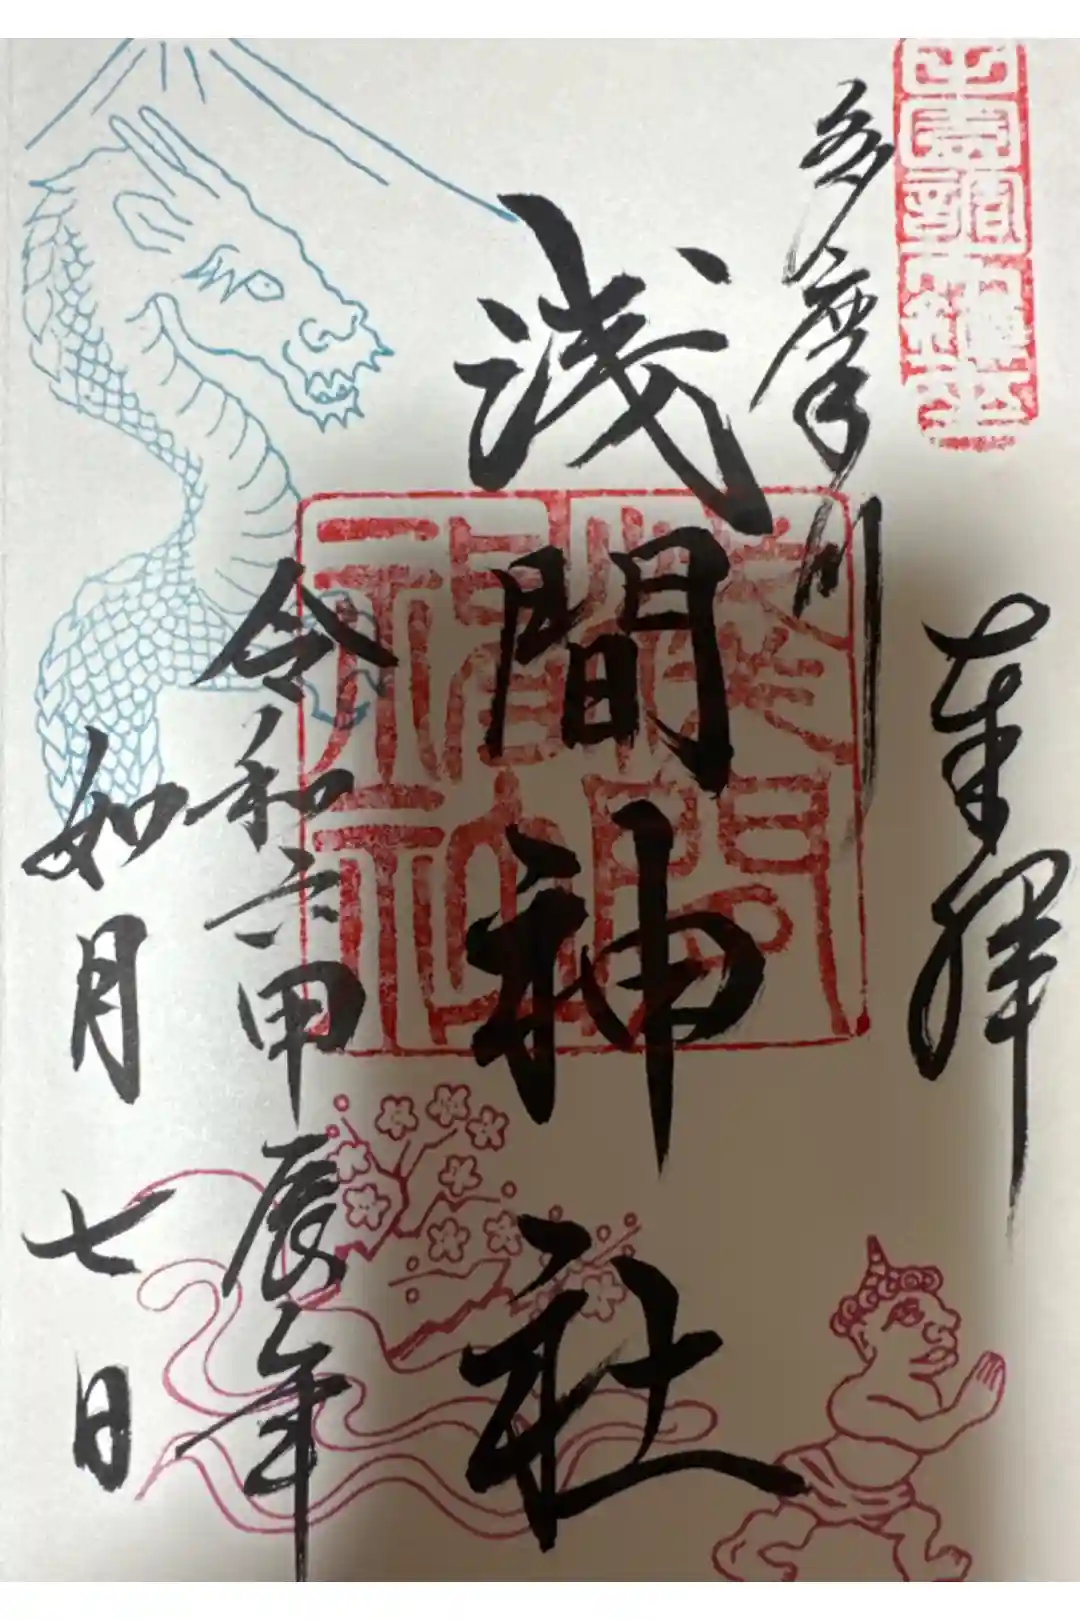 奉拝
多摩川
浅間神社
令和六甲辰年
如月七日